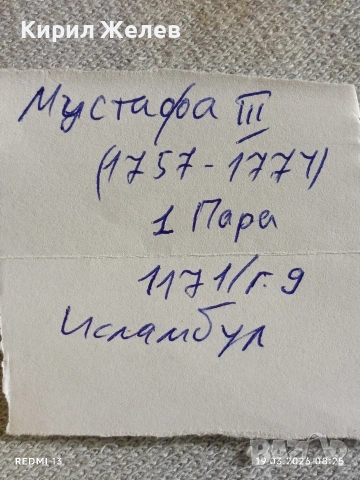 Кирил Желев
Мустафа III
(1757-1774)
1 Пара
1171/г.9
Исламбул
REDMI 13
19.03.2026 08:25